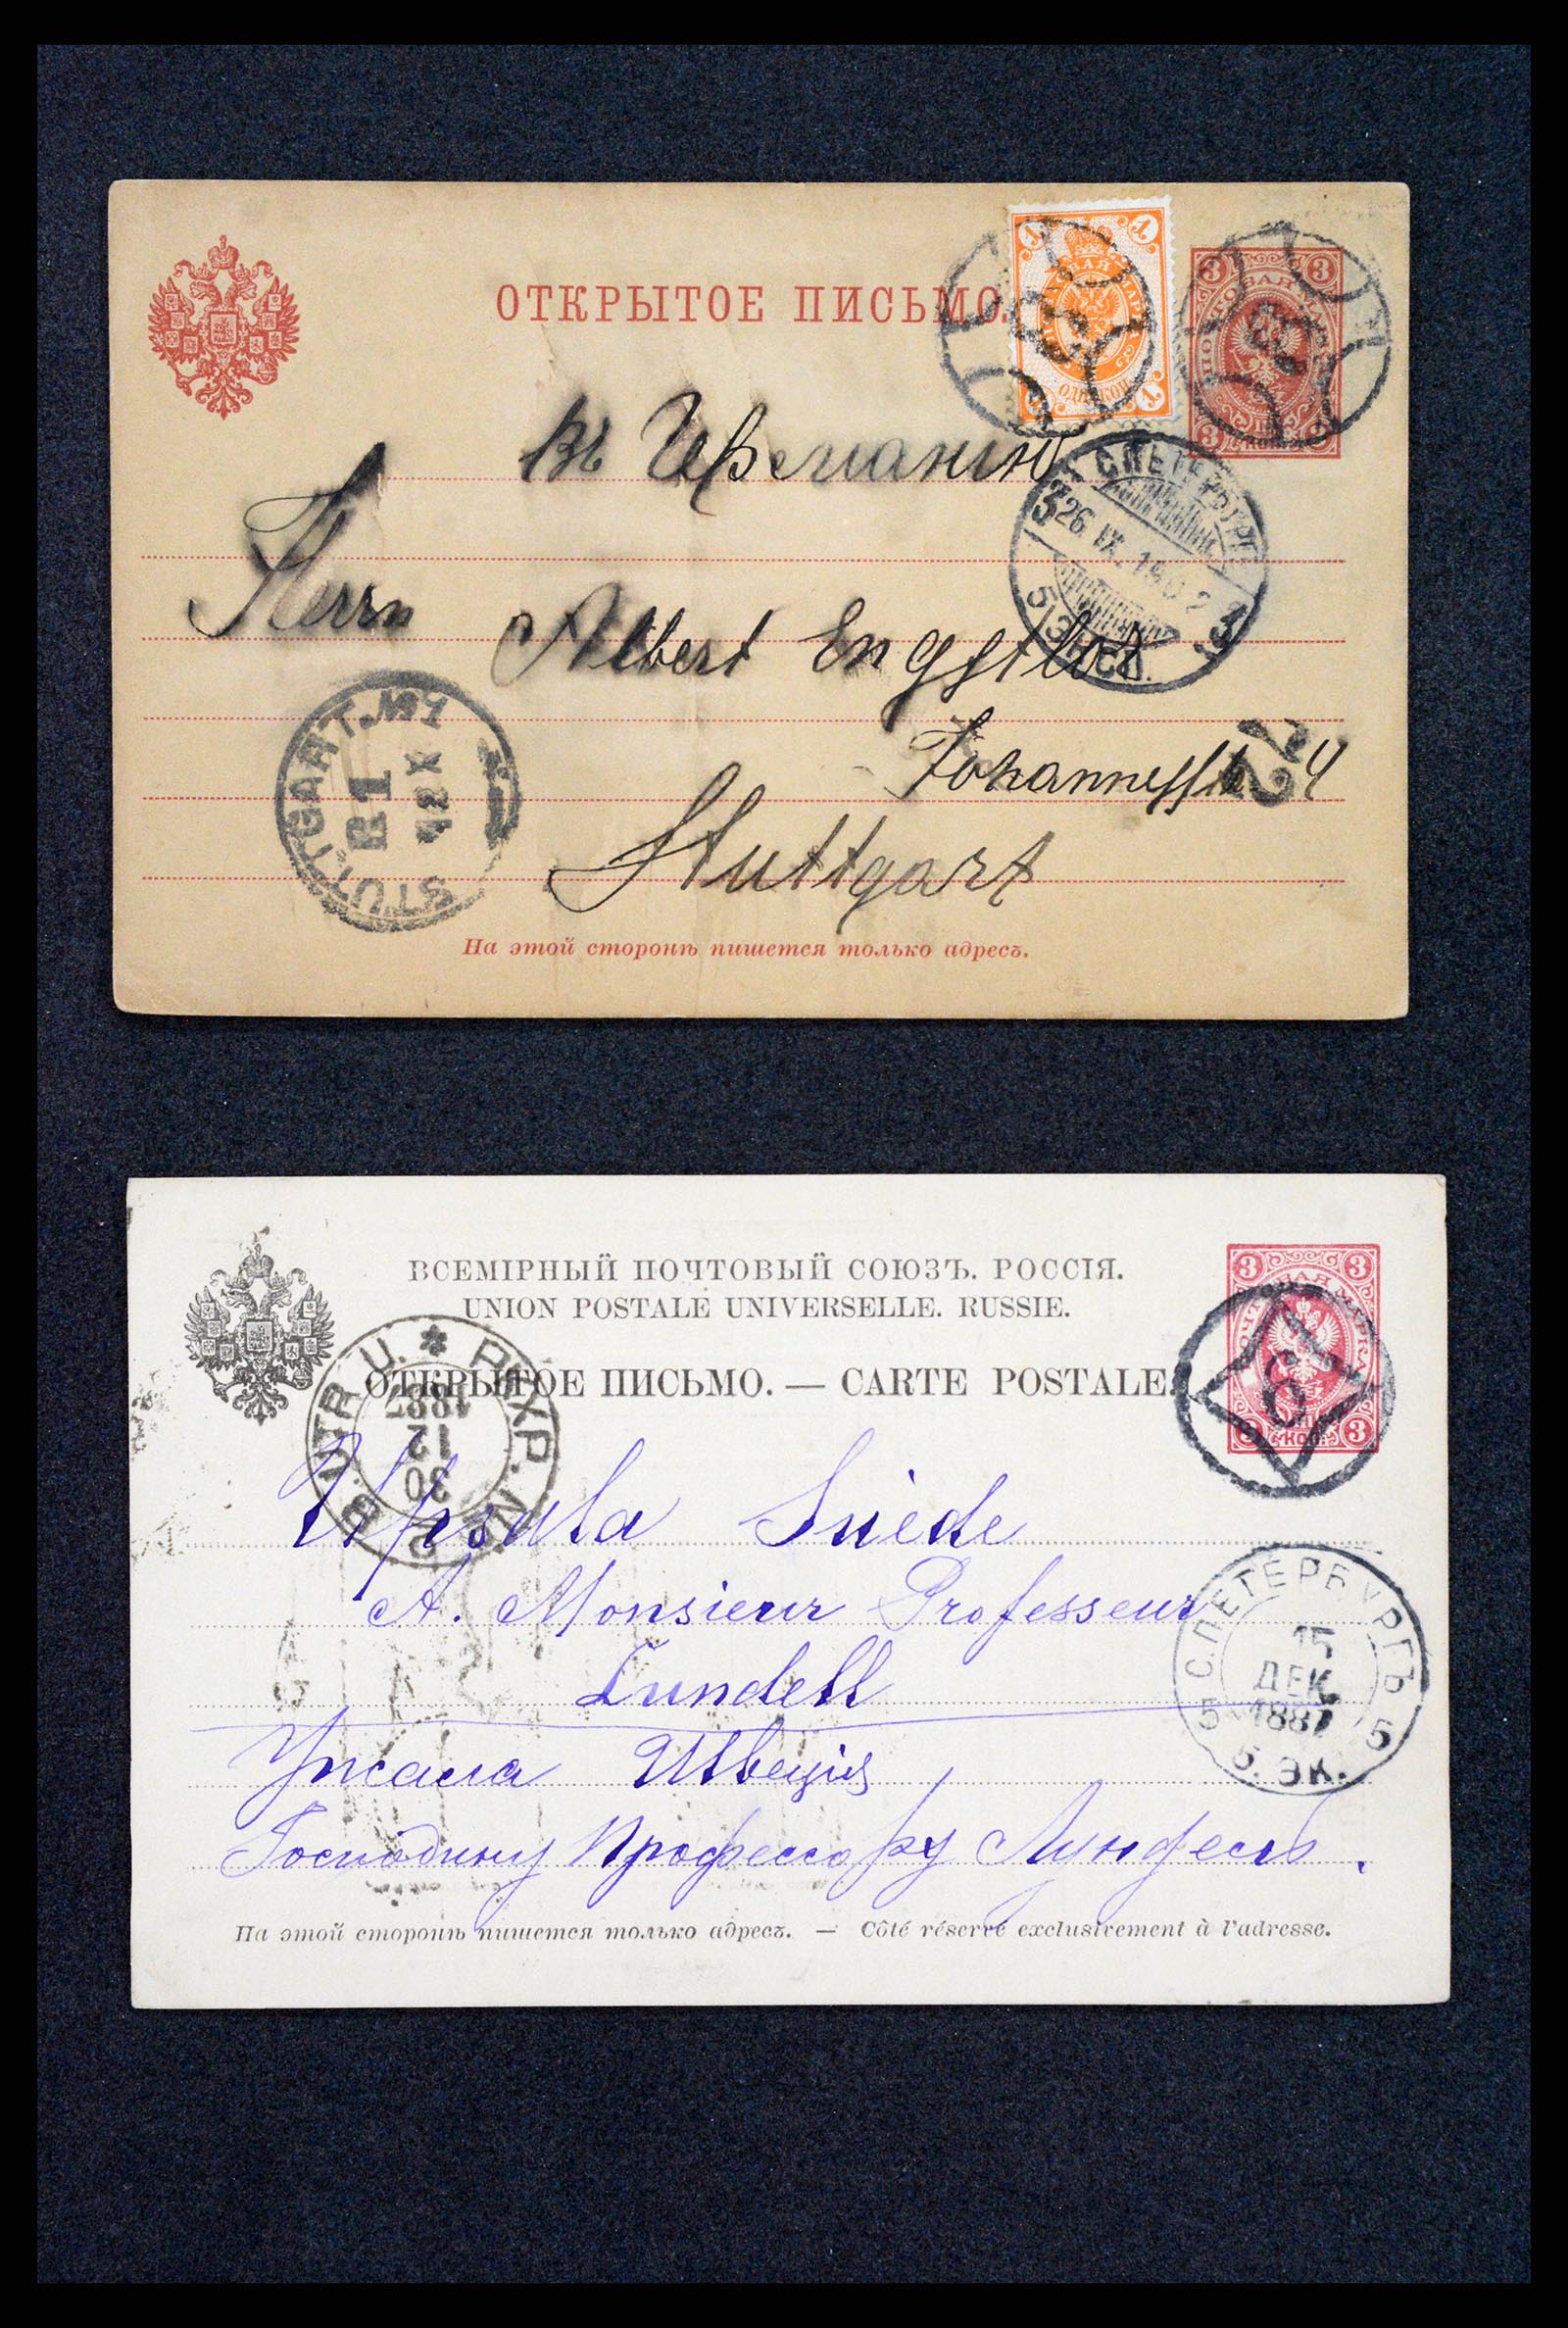 ОТКРЫТОЕ ПИСЬМО.
1 1
ОДНА КОП.
1 1
3 3
ПОЧТОВАЯ МАРКА
3
Въ Германію
С.ПЕТЕРБУРГЪ
26 IX 1902
5 ЭКСП.
Herrn Albert
22
Johannesstr 4
STUTTGART. №1
B1
12 X
Stuttgart
На этой сторонѣ пишется только адресъ.
ВСЕМІРНЫЙ ПОЧТОВЫЙ СОЮЗЪ. РОССІЯ.
UNION POSTALE UNIVERSELLE. RUSSIE.
ОТКРЫТОЕ ПИСЬМО. — CARTE POSTALE.
3 3
ПОЧТОВАЯ МАРКА
КОП. 3
6
PKXP. Nr 2 B. UTR. U.
30
12
1887
Upsala Suède
A. Monsieur Professeur
Lundell
С.ПЕТЕРБУРГЪ
15
ДЕК.
1887
5 5
5. ЭК.
Упсала Швеція
Господину Профессору Лунделъ.
На этой сторонѣ пишется только адресъ. — Côté réservé exclusivement à l'adresse.